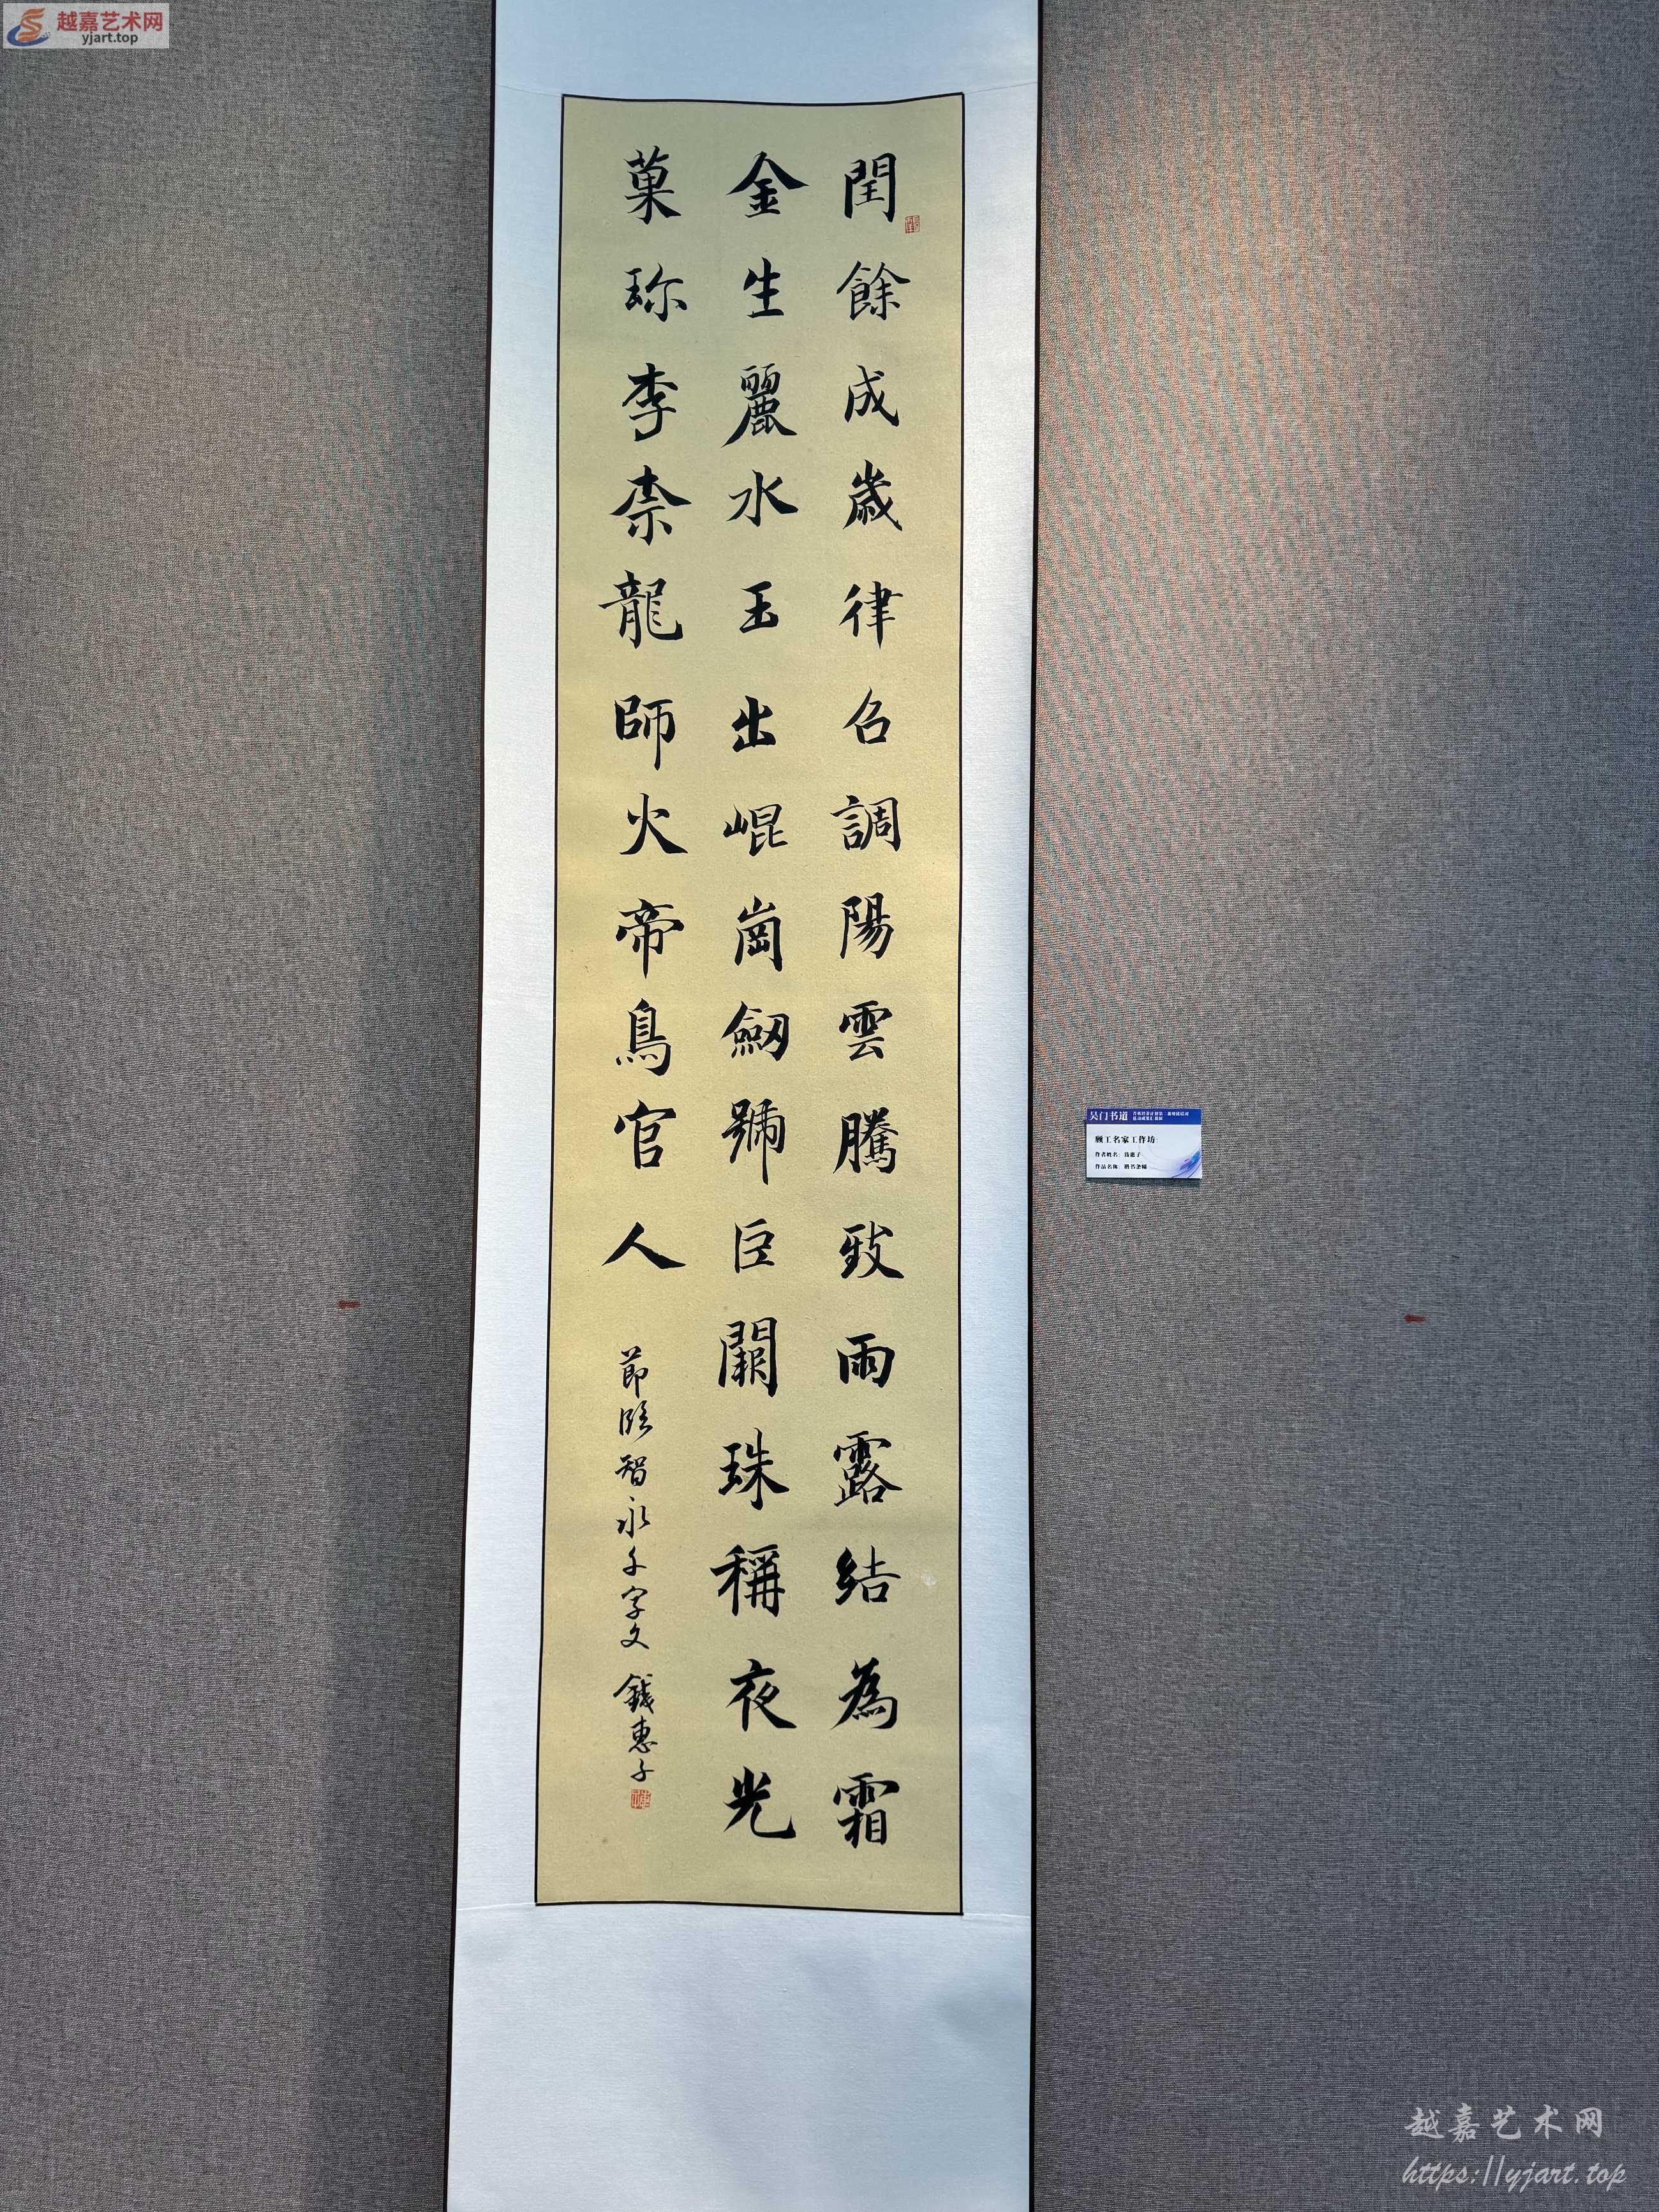 越嘉艺术网
yjart.top
閏餘成歲律召調陽雲騰致雨露結為霜
金生麗水玉出崐崗劒號巨闕珠稱夜光
菓珎李柰龍師火帝鳥官人
節臨智永千字文 錢惠子
吴门书道
顾工名家工作坊:
作者姓名: 钱惠子
作品名称: 楷书条幅
越嘉艺术网
https://yjart.top